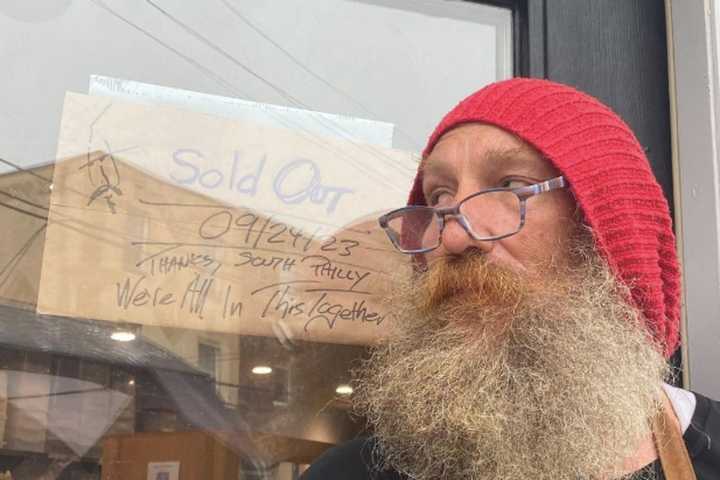 Sold Out
09/24/23
THANKS, SOUTH PHILLY
We're All In This Together